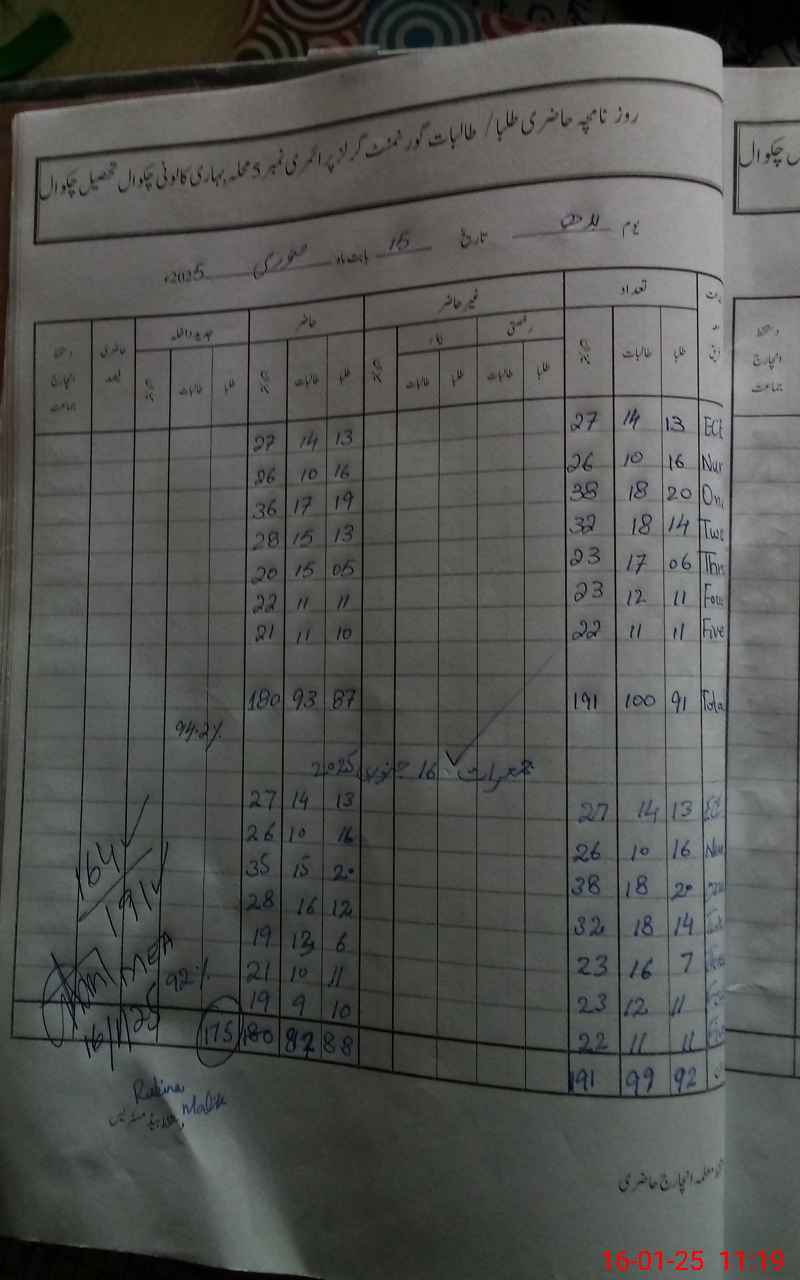 روز نامچہ حاضری طلبا / طالبات گورنمنٹ گرلز پرائمری نمبر 5 محلہ بہاری کالونی چکوال تحصیل چکوال
یوم بدھ تاریخ 15 بابت ماہ جنوری 2025ء
تعداد غیر حاضر حاضر جدید داخلہ حاضری فیصد دستخط انچارج جماعت
رخصتی
طلبا طالبات کل طلبا طالبات طلبا طالبات کل طلبا طالبات کل طلبا طالبات کل
ECE 13 14 27 13 14 27
Nur 16 10 26 16 10 26
On 20 18 38 19 17 36
Two 14 18 32 13 15 28
Thr 06 17 23 05 15 20
Four 11 12 23 11 11 22
Five 11 11 22 10 11 21
Tota 91 100 191 87 93 180
94.2%
جمعرات 16 جنوری 2025
13 14 27 13 14 27
Nur 16 10 26 16 10 26
20 18 38 20 15 35
14 18 32 12 16 28
7 16 23 6 13 19
11 12 23 11 10 21 92%
11 11 22 10 9 19
92 99 191 88 87 180 175
164
191
MEA
16/1/25
Rubina Malik
ہیڈ مسٹریس
معلمہ انچارج حاضری
چکوال
دستخط
انچارج
جماعت
16-01-25 11:19